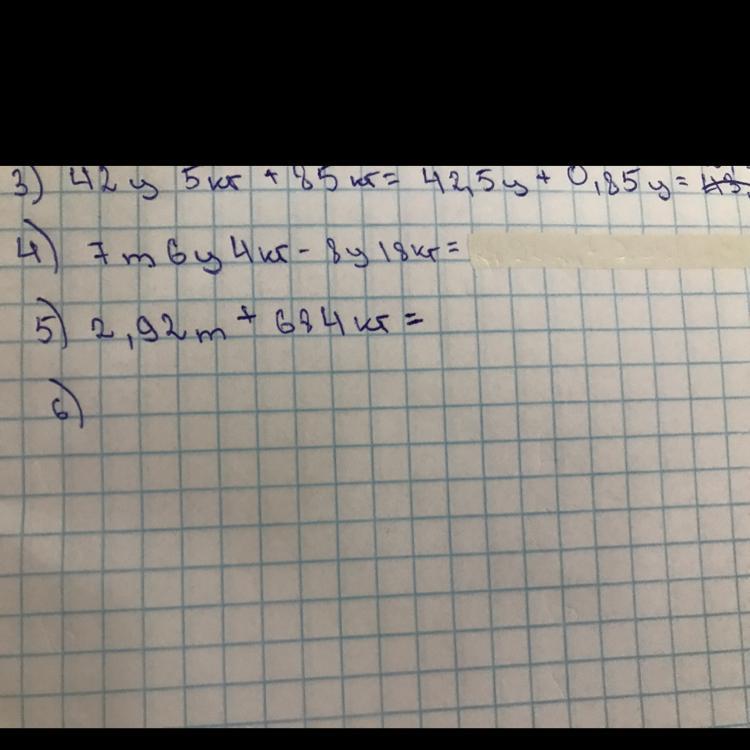 3) 42 ц 5 кг + 85 кг = 42,5 ц + 0,85 ц =
4) 7 т 6 ц 4 кг - 8 ц 18 кг =
5) 2,92 т + 684 кг =
6)